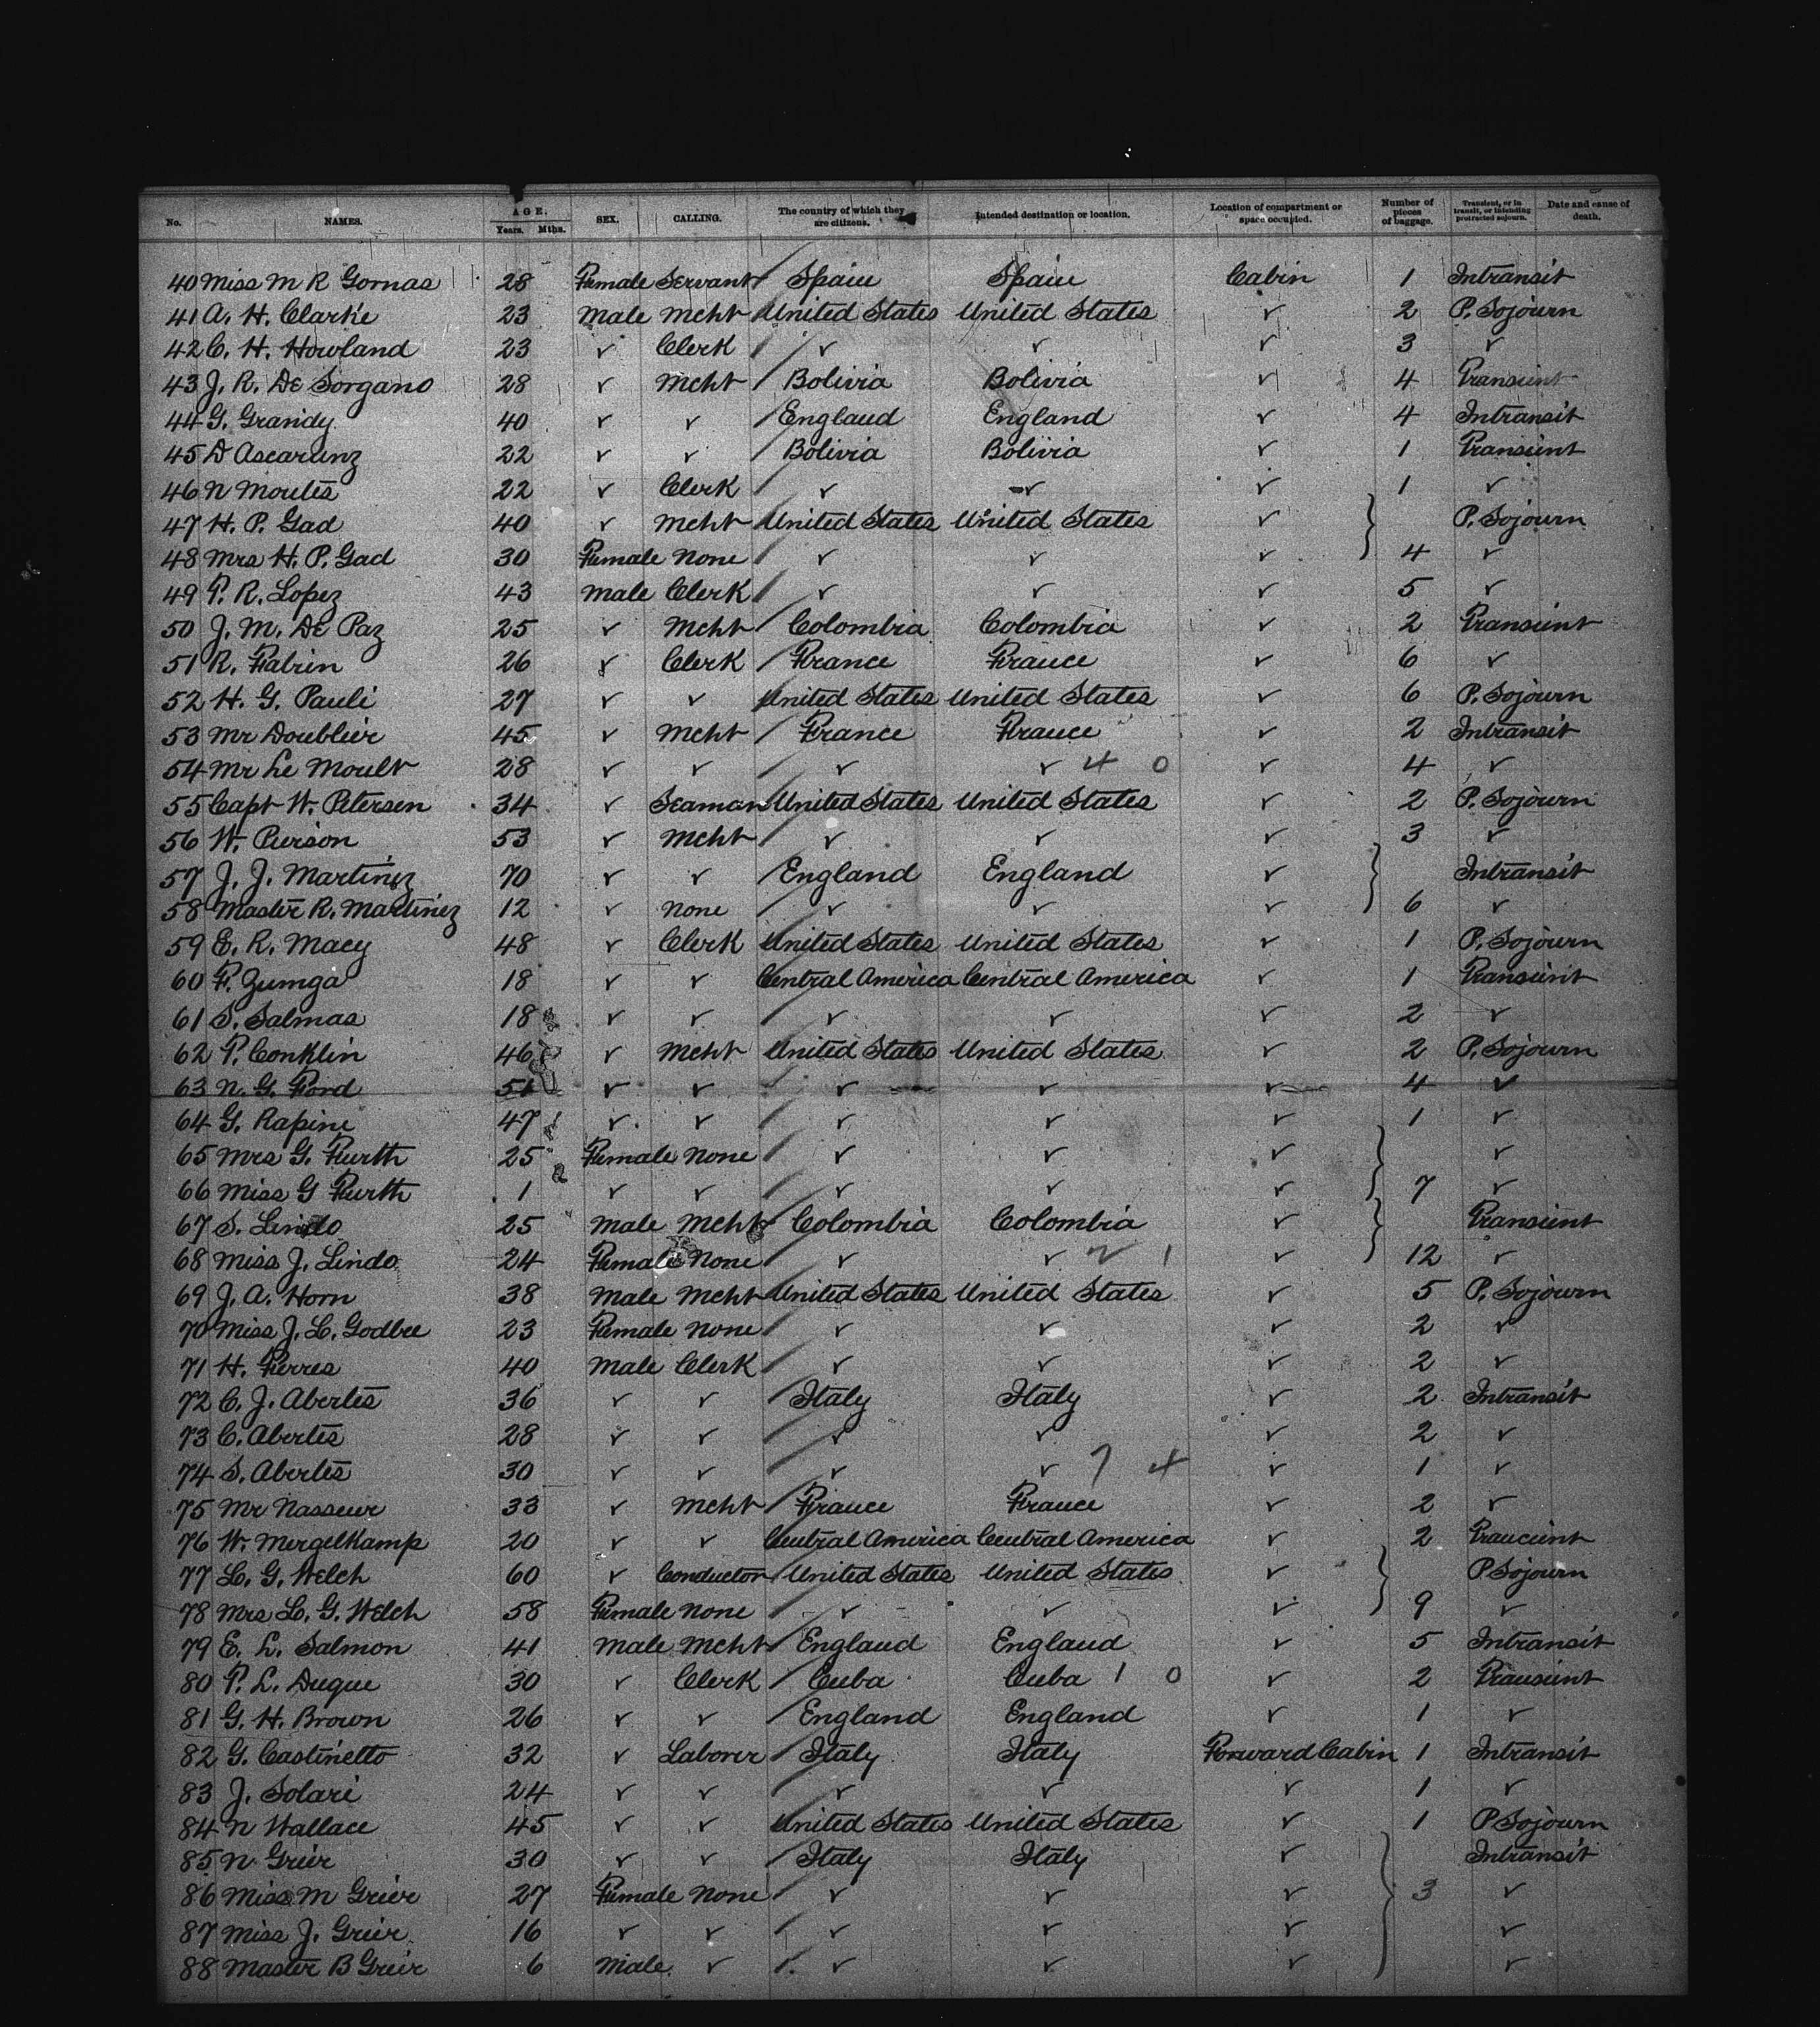 No. NAMES. AGE. Years. Mths. SEX. CALLING. The country of which they are citizens. Intended destination or location. Location of compartment or space occupied. Number of pieces of baggage. Transient, or in transit, or intending protracted sojourn. Date and cause of death.
40 Miss M R Gomas 28 Female Servant Spain Spain Cabin 1 Intransit
41 A. H. Clarke 23 Male Mcht United States United States ✓ 2 P. Sojourn
42 C. H. Howland 23 ✓ Clerk ✓ ✓ ✓ 3 ✓
43 J. R. De Sorgano 28 ✓ Mcht Bolivia Bolivia ✓ 4 Transient
44 G. Grandy 40 ✓ ✓ England England ✓ 4 Intransit
45 D Ascarunz 22 ✓ ✓ Bolivia Bolivia ✓ 1 Transient
46 N Montes 22 ✓ Clerk ✓ ✓ ✓ 1 ✓
47 H. P. Gad 40 ✓ Mcht United States United States ✓ P. Sojourn
48 Mrs H. P. Gad 30 Female None ✓ ✓ ✓ 4 ✓
49 P. R. Lopez 43 Male Clerk ✓ ✓ ✓ 5 ✓
50 J. M. De Paz 25 ✓ Mcht Colombia Colombia ✓ 2 Transient
51 R. Fabrin 26 ✓ Clerk France France ✓ 6 ✓
52 H. G. Pauli 27 ✓ ✓ United States United States ✓ 6 P. Sojourn
53 Mr Doublier 45 ✓ Mcht France France ✓ 2 Intransit
54 Mr Le Moult 28 ✓ ✓ ✓ ✓ 4 0 ✓ 4 ✓
55 Capt W. Petersen 34 ✓ Seaman United States United States ✓ 2 P. Sojourn
56 W. Pierson 53 ✓ Mcht ✓ ✓ ✓ 3 ✓
57 J. J. Martinez 70 ✓ ✓ England England ✓ Intransit
58 Master R. Martinez 12 ✓ None ✓ ✓ ✓ 6 ✓
59 E. R. Macy 48 ✓ Clerk United States United States ✓ 1 P. Sojourn
60 F. Zumga 18 ✓ ✓ Central America Central America ✓ 1 Transient
61 S. Salmas 18 ✓ ✓ ✓ ✓ ✓ 2 ✓
62 P. Conklin 46 ✓ Mcht United States United States ✓ 2 P. Sojourn
63 N. G. Ford 51 ✓ ✓ ✓ ✓ ✓ 4 ✓
64 G. Rapine 47 ✓ ✓ ✓ ✓ ✓ 1 ✓
65 Mrs G. Furth 25 Female None ✓ ✓ ✓ ✓
66 Miss G Furth 1 ✓ ✓ ✓ ✓ ✓ 7 ✓
67 S. Lindo 25 Male Mcht Colombia Colombia ✓ Transient
68 Miss J. Lindo 24 Female None ✓ ✓ 2 1 ✓ 12 ✓
69 J. A. Horn 38 Male Mcht United States United States ✓ 5 P. Sojourn
70 Miss J. L. Godbee 23 Female None ✓ ✓ ✓ 2 ✓
71 H. Ferres 40 Male Clerk ✓ ✓ ✓ 2 ✓
72 C. J. Abertes 36 ✓ ✓ Italy Italy ✓ 2 Intransit
73 C. Abertes 28 ✓ ✓ ✓ ✓ ✓ 2 ✓
74 S. Abertes 30 ✓ ✓ ✓ ✓ 7 4 ✓ 1 ✓
75 Mr Nasseur 33 ✓ Mcht France France ✓ 2 ✓
76 W. Mergelkamp 20 ✓ ✓ Central America Central America ✓ 2 Trancient
77 L. G. Welch 60 ✓ Conductor United States United States ✓ P Sojourn
78 Mrs L. G. Welch 58 Female None ✓ ✓ ✓ 9 ✓
79 E. L. Salmon 41 Male Mcht England England ✓ 5 Intransit
80 P. L. Duque 30 ✓ Clerk Cuba Cuba 1 0 ✓ 2 Transient
81 G. H. Brown 26 ✓ ✓ England England ✓ 1 ✓
82 G. Castinetto 32 ✓ Laborer Italy Italy Forward Cabin 1 Intransit
83 J. Solari 24 ✓ ✓ ✓ ✓ ✓ 1 ✓
84 N Wallace 45 ✓ ✓ United States United States ✓ 1 P Sojourn
85 N Grier 30 ✓ ✓ Italy Italy ✓ Intransit
86 Miss M Grier 27 Female None ✓ ✓ ✓ 3 ✓
87 Miss J. Grier 16 ✓ ✓ ✓ ✓ ✓ ✓
88 Master B Grier 6 Male ✓ ✓ ✓ ✓ ✓